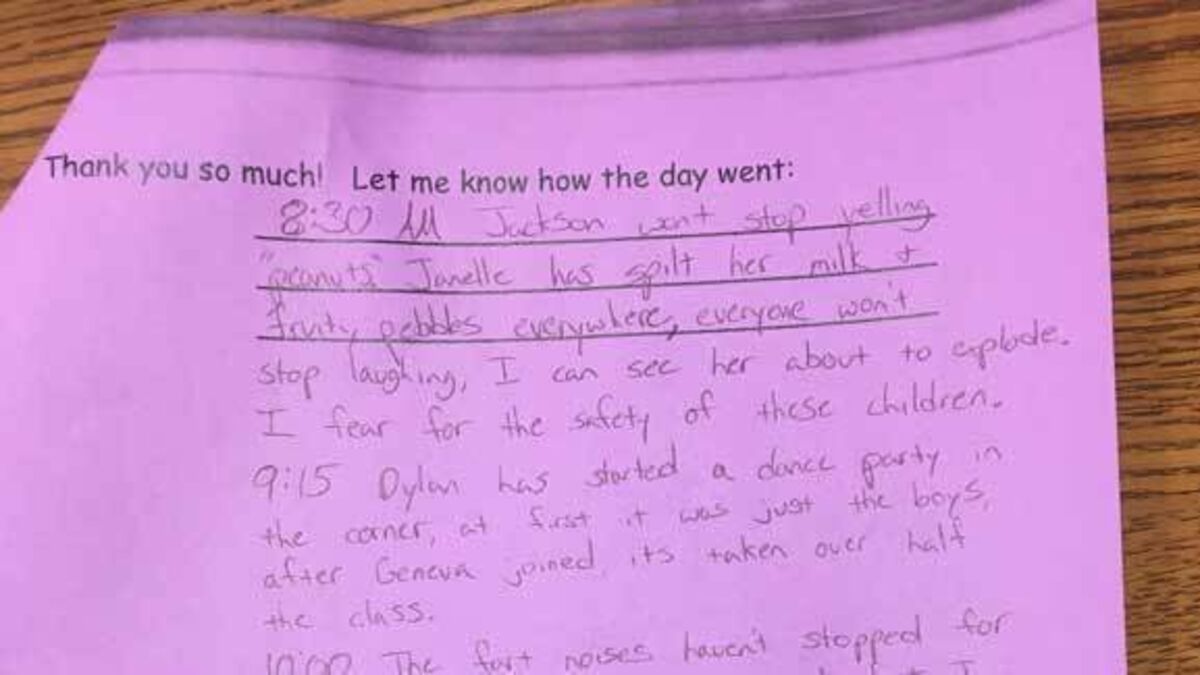 Thank you so much! Let me know how the day went:
8:30 AM Jackson wont stop yelling
"peanuts" Janelle has spilt her milk +
fruity pebbles everywhere, everyone won't
stop laughing, I can see her about to explode.
I fear for the safety of these children.
9:15 Dylan has started a dance party in
the corner, at first it was just the boys,
after Geneva joined its taken over half
the class.
10:00 The fart noises haven't stopped for
I